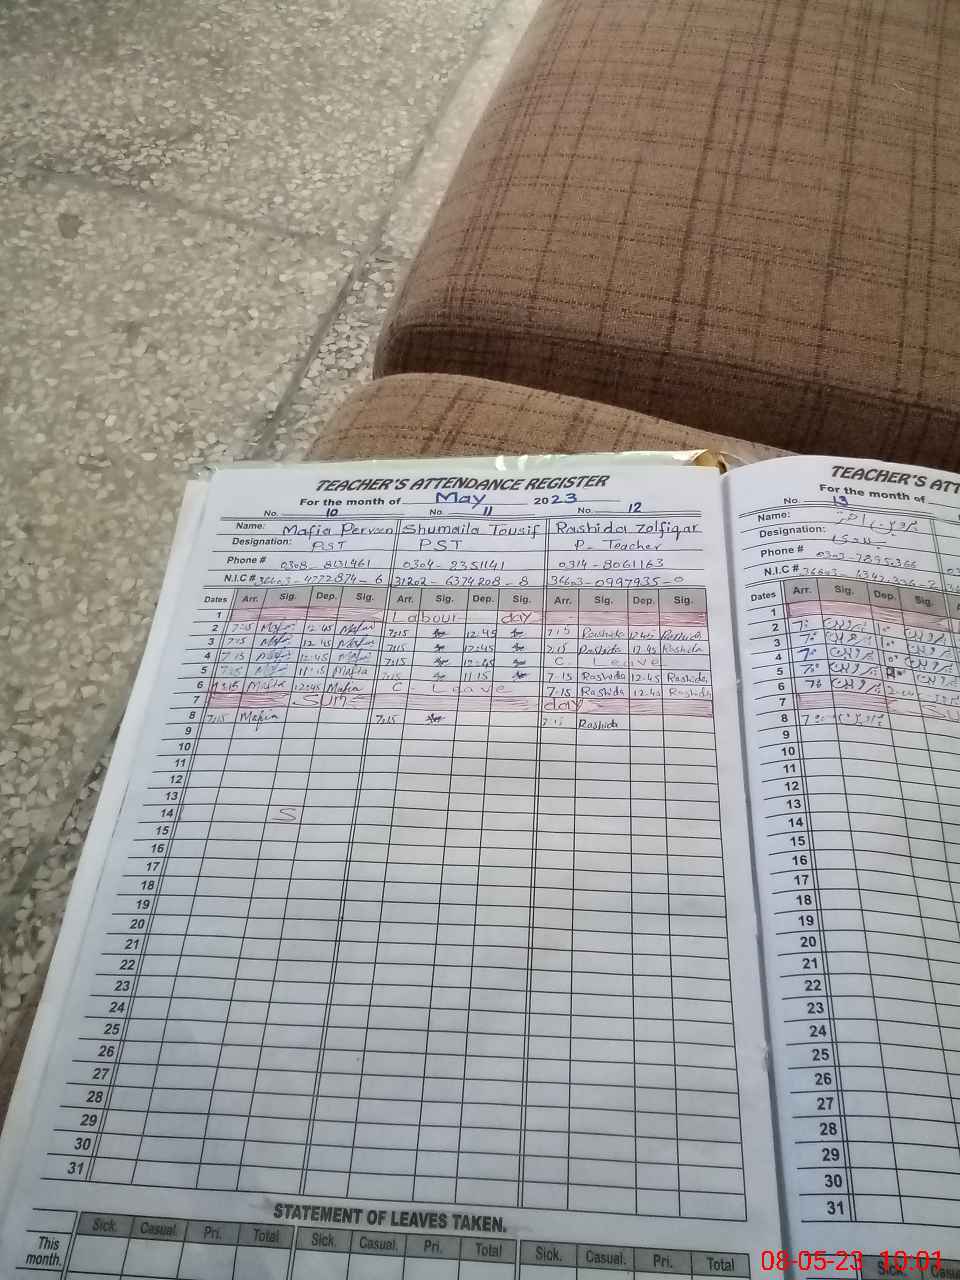 TEACHER'S ATTENDANCE REGISTER
For the month of May 2023
No. 10 No. 11 No. 12
Name: Mafia Perveen Shumaila Tousif Rashida Zolfiqar
Designation: PST PST P- Teacher
Phone # 0308-8131461 0304-2351141 0314-8061163
N.I.C # 36603-4772874-6 31202-6374208-8 36603-0997935-0
Dates Arr. Sig. Dep. Sig. Arr. Sig. Dep. Sig. Arr. Sig. Dep. Sig.
1 Labour day
2 7:15 Mafia 12:45 Mafia 7:15 12:45 7:15 Rashida 12:45 Rashida
3 7:15 Mafia 12:45 Mafia 7:15 12:45 7:15 Rashida 12:45 Rashida
4 7:15 Mafia 12:45 Mafia 7:15 12:45 C. Leave
5 7:15 Mafia 11:15 Mafia 7:15 11:15 7:15 Rashida 12:45 Rashida
6 7:15 Mafia 12:45 Mafia C. Leave 7:15 Rashida 12:45 Rashida
7 Sun day
8 7:15 Mafia 7:15 7:15 Rashida
9
10
11
12
13
14 S
15
16
17
18
19
20
21
22
23
24
25
26
27
28
29
30
31
STATEMENT OF LEAVES TAKEN.
Sick. Casual. Pri. Total Sick. Casual. Pri. Total Sick. Casual. Pri. Total
This month.
TEACHER'S ATT
For the month of
No. 13
Name:
Designation:
Phone # 0303-7895366
N.I.C #
Dates Arr. Sig. Dep. Sig.
1
2
3
4
5
6
7
8
9
10
11
12
13
14
15
16
17
18
19
20
21
22
23
24
25
26
27
28
29
30
31
Sick. Casu
08-05-23 10:01